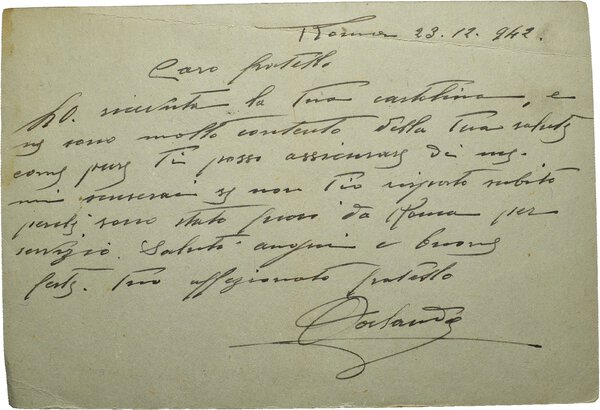 Roma 23.12.942.
Caro fratello
Ho ricevuta la tua cartolina, e
ne sono molto contento della tua salute
come pure ti posso assicurare di me.
mi scuserai se non tio risposto subito
perchè sono stato fuori da Roma per
servizio. Saluti auguri e buone
feste. tuo affezionato fratello
Orlando